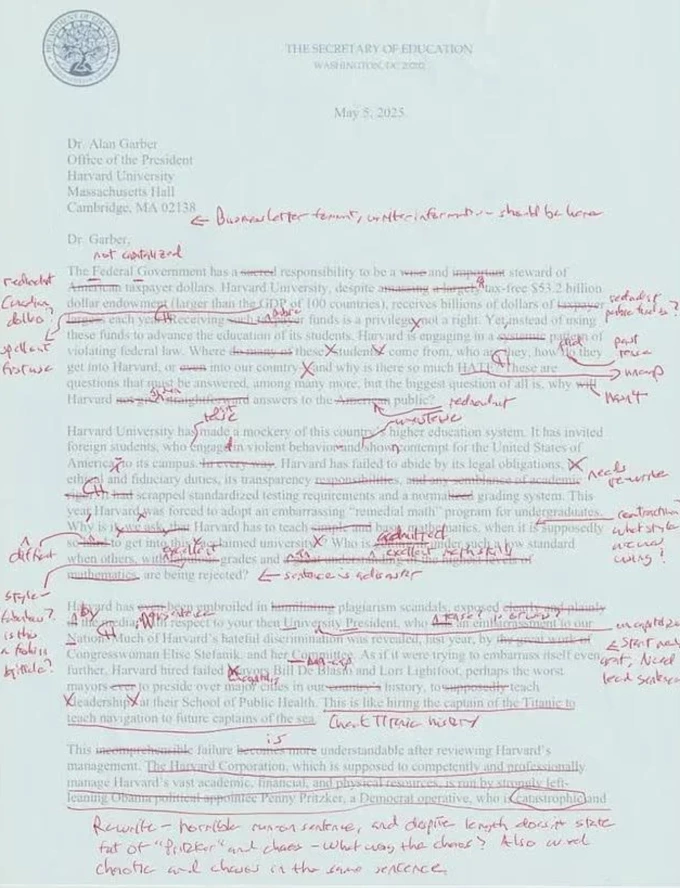 THE SECRETARY OF EDUCATION
WASHINGTON, DC 20202
May 5, 2025
Dr. Alan Garber
Office of the President
Harvard University
Massachusetts Hall
Cambridge, MA 02138
← Business letter format, writer information should be here
Dr. Garber,
not capitalized
The Federal Government has a sacred responsibility to be a wise and important steward of
American taxpayer dollars. Harvard University, despite amassing a largely tax-free $53.2 billion
dollar endowment (larger than the GDP of 100 countries), receives billions of dollars of taxpayer
largess each year. Receiving such taxpayer funds is a privilege, not a right. Yet instead of using
these funds to advance the education of its students, Harvard is engaging in a systemic pattern of
violating federal law. Where do many of these students come from, who are they, how do they
get into Harvard, or even into our country and why is there so much HATE? These are
questions that must be answered, among many more, but the biggest question of all is, why will
Harvard not give straightforward answers to the American public?
redundant
Canadian
dollars?
spell out
first use
redundant
past
tense
won't
redundant
Harvard University has made a mockery of this country's higher education system. It has invited
foreign students, who engage in violent behavior and show contempt for the United States of
America, to its campus. In every way, Harvard has failed to abide by its legal obligations,
ethical and fiduciary duties, its transparency responsibilities, and any semblance of academic
rigor. It had scrapped standardized testing requirements and a normalized grading system. This
year Harvard was forced to adopt an embarrassing "remedial math" program for undergraduates.
Why is it, we ask, that Harvard has to teach simple and basic mathematics, when it is supposedly
so hard to get into this acclaimed university? Who is getting in under such a low standard
when others, with fabulous grades and a great understanding of the highest levels of
mathematics, are being rejected?
tense
needs
rewrite
difficult
admitted
excellent
excellent math skills
← sentence is a disaster
style
Harvard has even been embroiled in humiliating plagiarism scandals, exposed clearly and plainly
in the media, with respect to your then University President, who was an embarrassment to our
Nation. Much of Harvard's hateful discrimination was revealed, last year, by the great work of
Congresswoman Elise Stefanik, and her Committee. As if it were trying to embarrass itself even
further, Harvard hired failed Mayors Bill De Blasio and Lori Lightfoot, perhaps the worst
mayors ever to preside over major cities in our country's history, to supposedly teach
"leadership" at their School of Public Health. This is like hiring the captain of the Titanic to
teach navigation to future captains of the sea.
by
Check Titanic history
is
This incomprehensible failure becomes more understandable after reviewing Harvard's
management. The Harvard Corporation, which is supposed to competently and professionally
manage Harvard's vast academic, financial, and physical resources, is run by strongly left-
leaning Obama political appointee Penny Pritzker, a Democrat operative, who is catastrophic and
Rewrite – horrible run on sentence, and despite length doesn't state
of "Pritzker" and chaos – What was the chaos? Also used
chaotic and chaos in the same sentence.